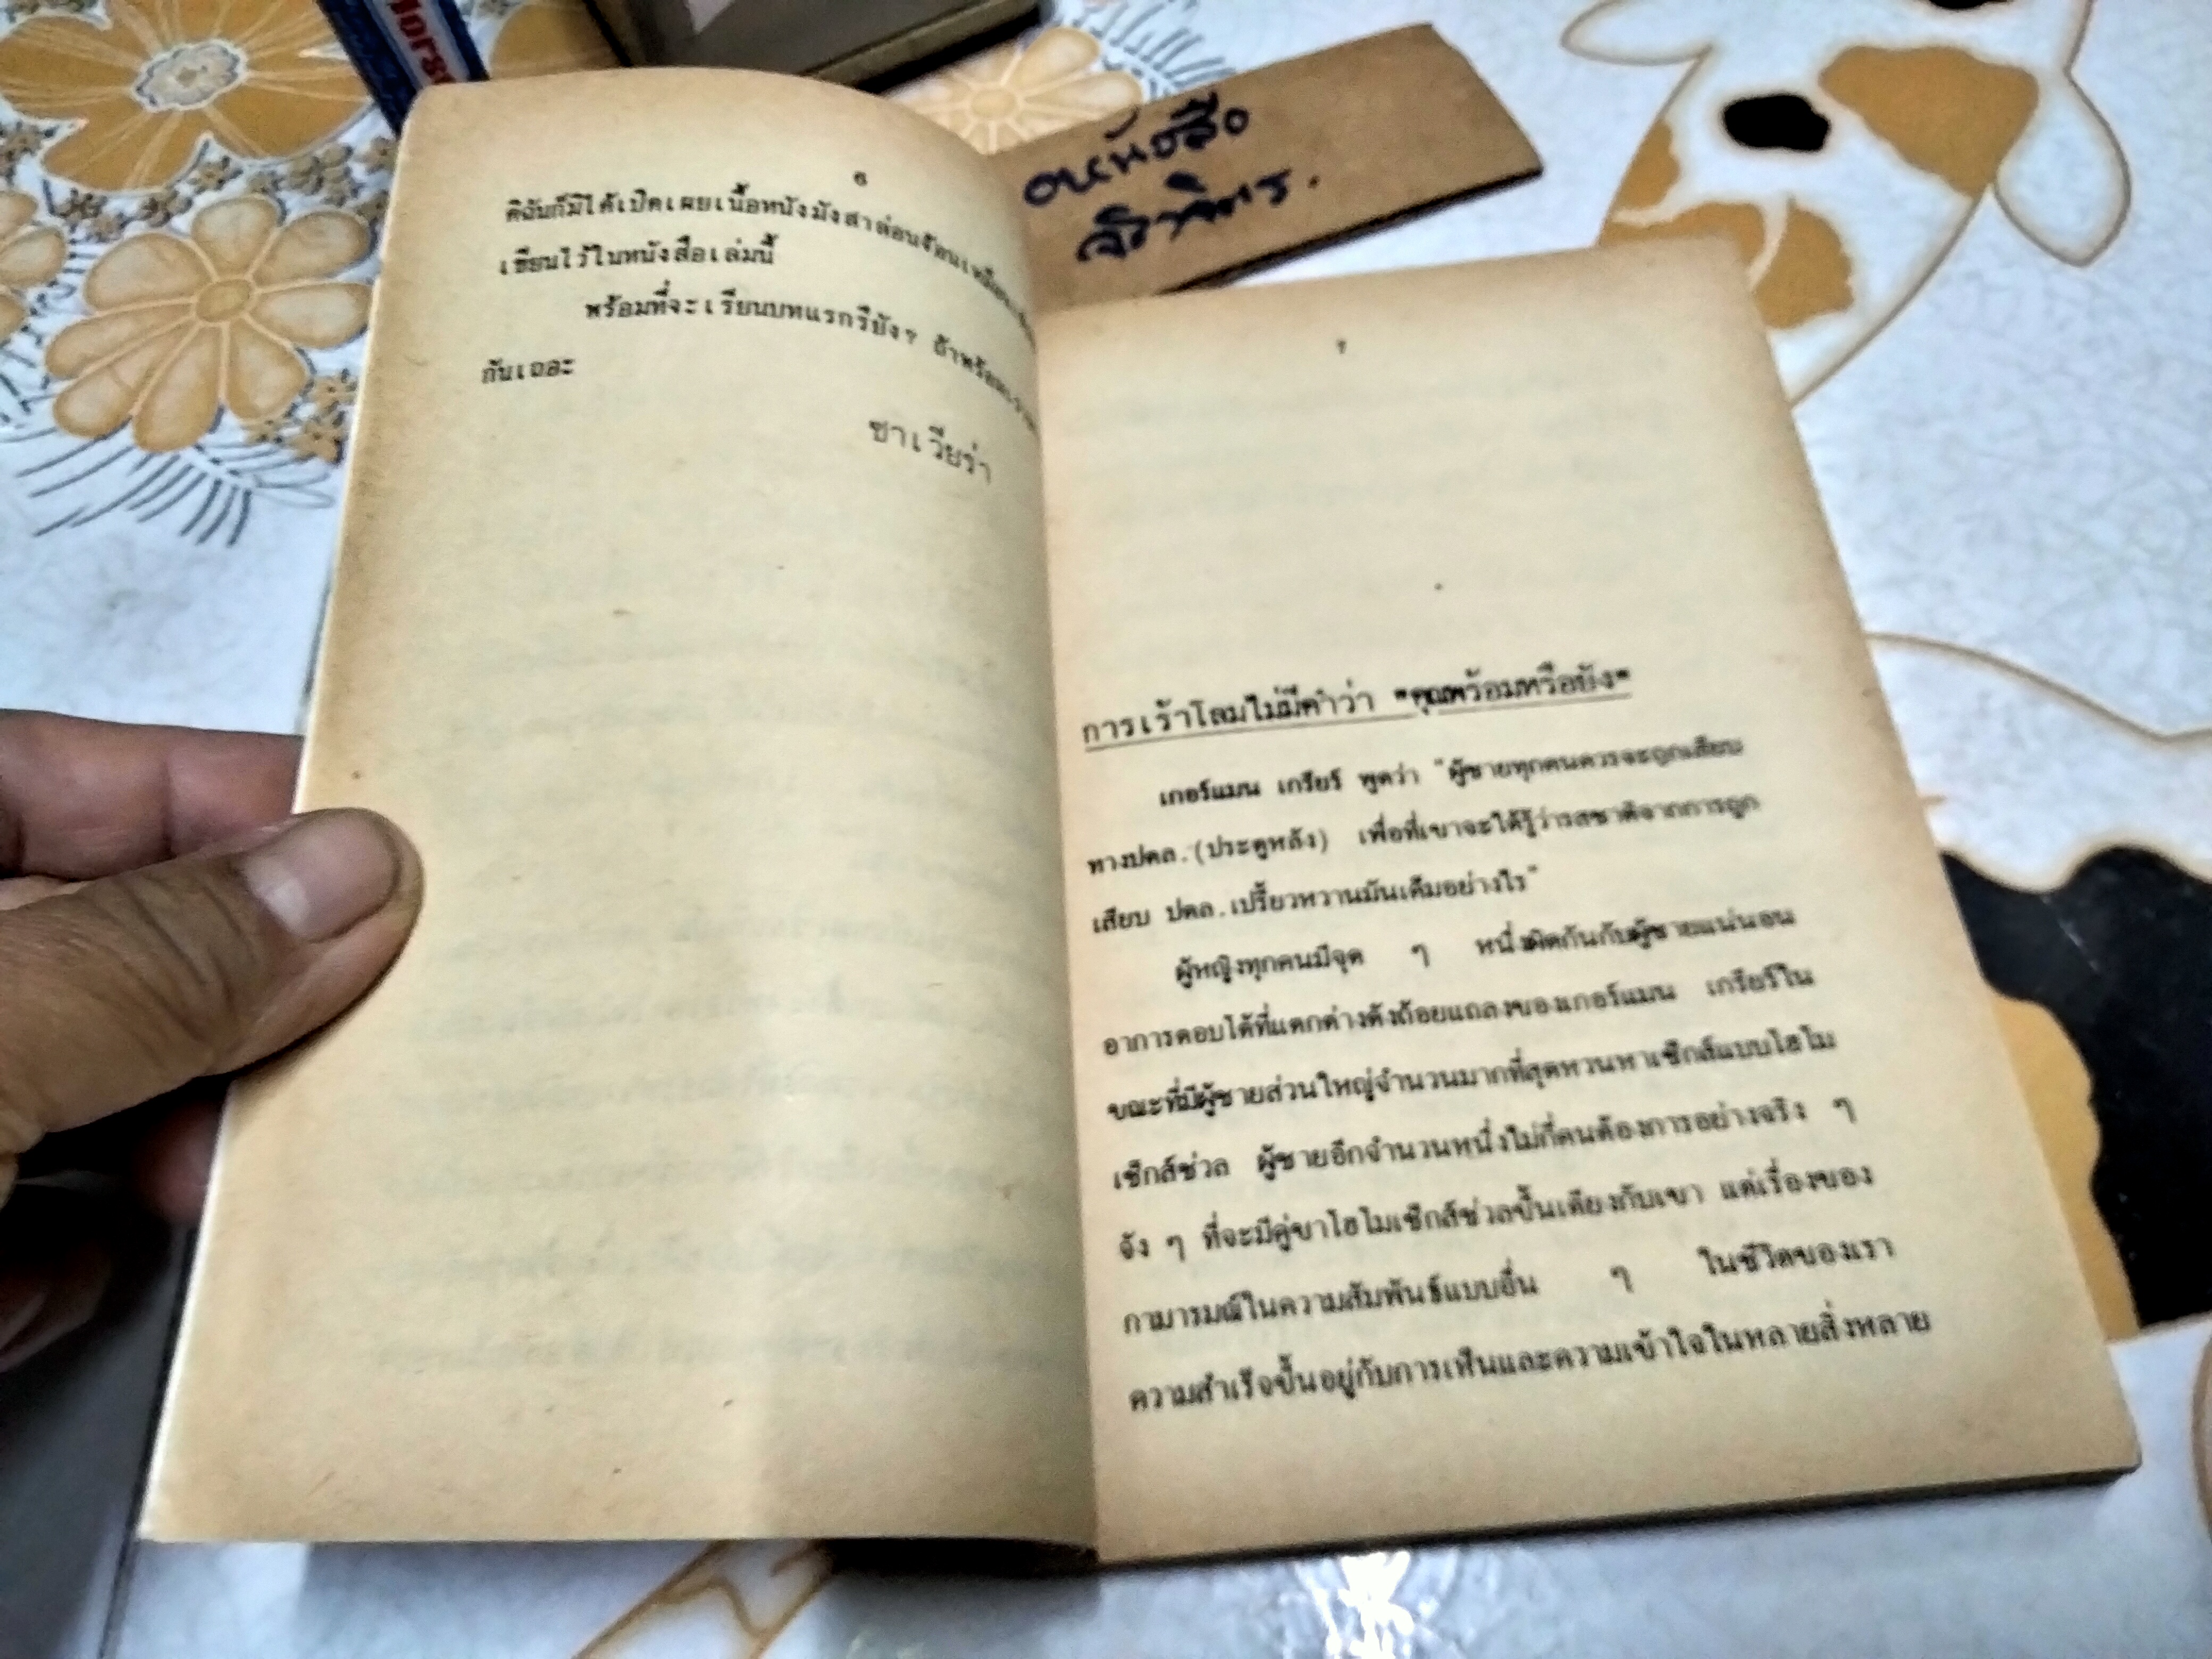 Horse
๖
ดิฉันก็มิได้เปิดเผยเนื้อหนังมังสาล่อนจ้อน
เขียนไว้ในหนังสือเล่มนี้
พร้อมที่จะเรียนบทแรกรึยัง? ถ้าพร้อม
กันเถอะ
ซาเวียร่า
๗
การเร้าโลมไม่มีคำว่า "คุณพร้อมหรือยัง"
เกอร์แมน เกรียร์ พูดว่า "ผู้ชายทุกคนควรจะถูกเสียบ
ทางปตล.(ประตูหลัง) เพื่อที่เขาจะได้รู้ว่ารสชาติจากการถูก
เสียบ ปตล.เปรี้ยวหวานมันเค็มอย่างไร"
ผู้หญิงทุกคนมีจุด ๆ หนึ่งผิดกันกับผู้ชายแน่นอน
อาการตอบโต้ที่แตกต่างดังถ้อยแถลงของเกอร์แมน เกรียร์ใน
ขณะที่มีผู้ชายส่วนใหญ่จำนวนมากที่สุดหวนหาเซ็กส์แบบโฮโม
เซ็กส์ช่วล ผู้ชายอีกจำนวนหนึ่งไม่กี่คนต้องการอย่างจริง ๆ
จัง ๆ ที่จะมีคู่ขาโฮโมเซ็กส์ช่วลขึ้นเตียงกับเขา แต่เรื่องของ
กามารมณ์ในความสัมพันธ์แบบอื่น ๆ ในชีวิตของเรา
ความสำเร็จขึ้นอยู่กับการเห็นและความเข้าใจในหลายสิ่งหลาย